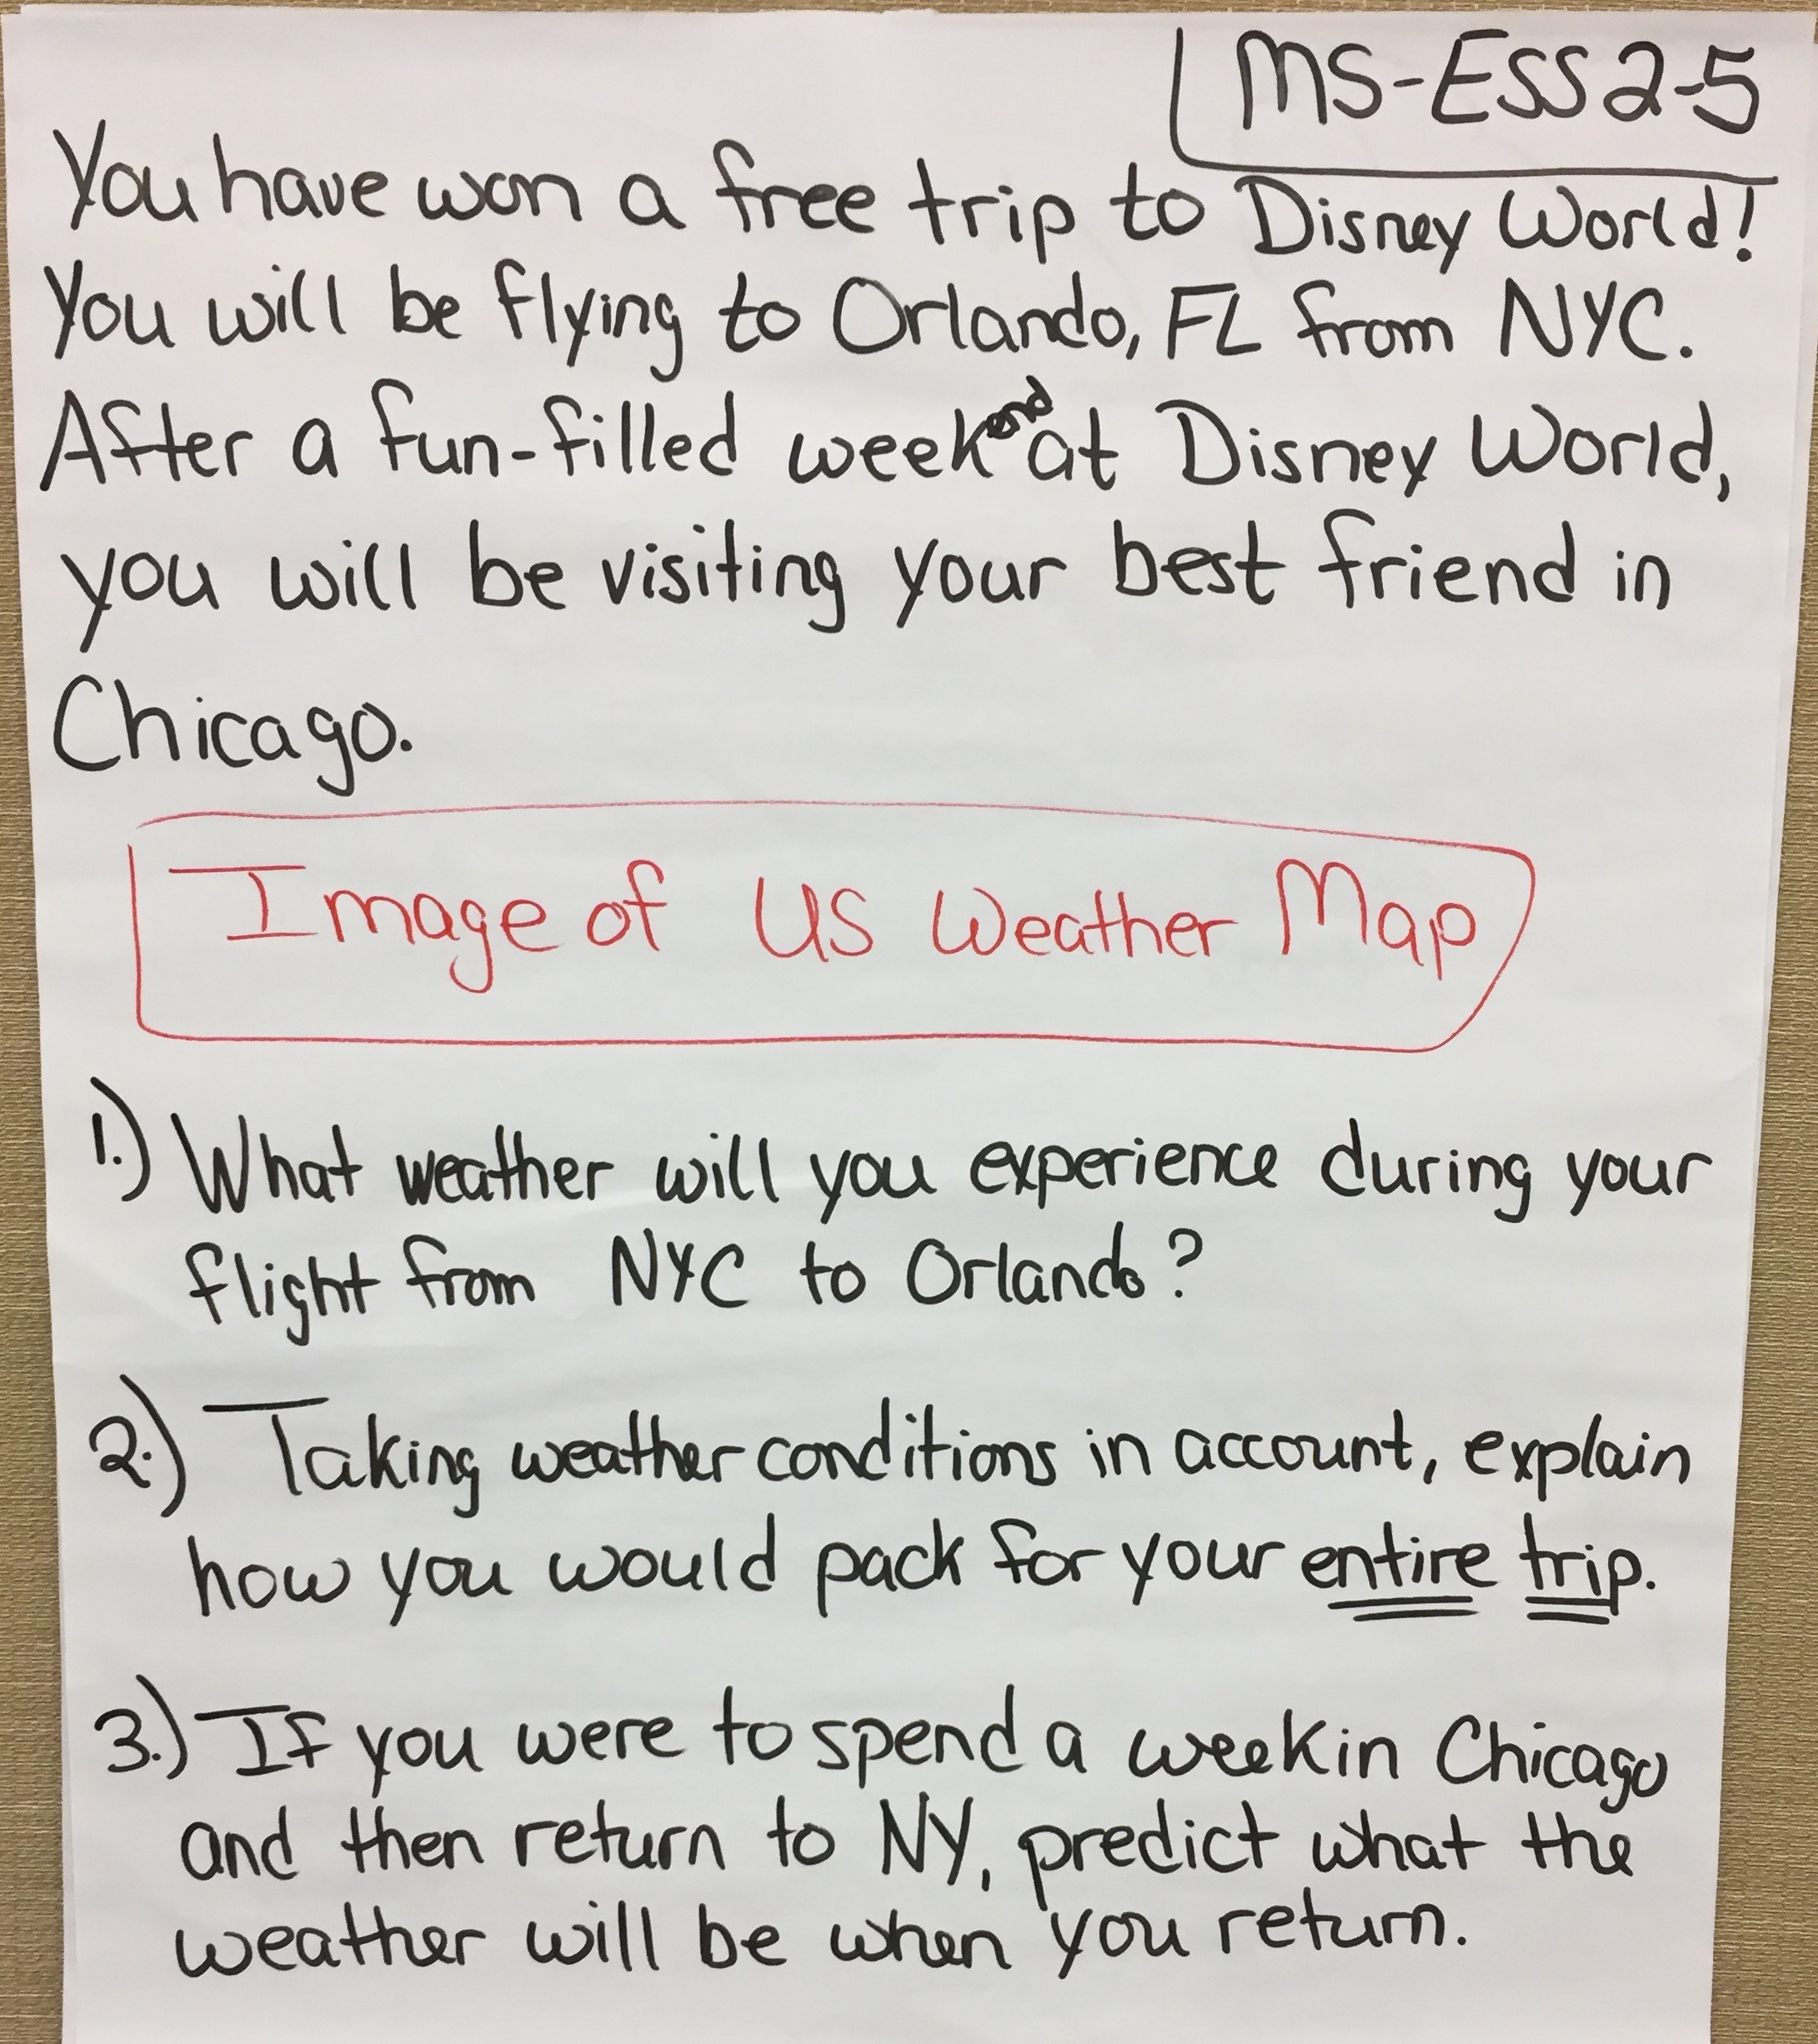 MS-ESS2-5
You have won a free trip to Disney World!
You will be flying to Orlando, FL from NYC.
After a fun-filled weekend at Disney World,
you will be visiting your best friend in
Chicago.
Image of US Weather Map
1.) What weather will you experience during your
flight from NYC to Orlando?
2.) Taking weather conditions in account, explain
how you would pack for your entire trip.
3.) If you were to spend a week in Chicago
and then return to NY, predict what the
weather will be when you return.